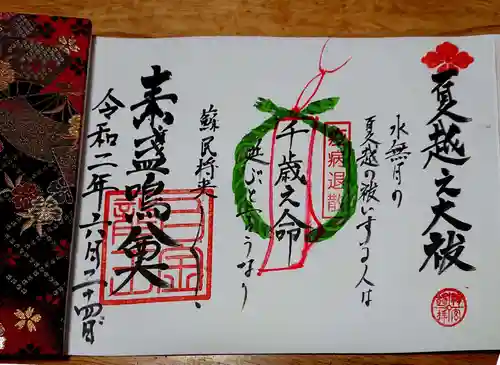 夏越之大祓
水無月の
夏越の祓いする人は
疫病退散
千歳之命
延ぶと言うなり
蘇民将来
素盞嗚尊
令和二年六月二十四日